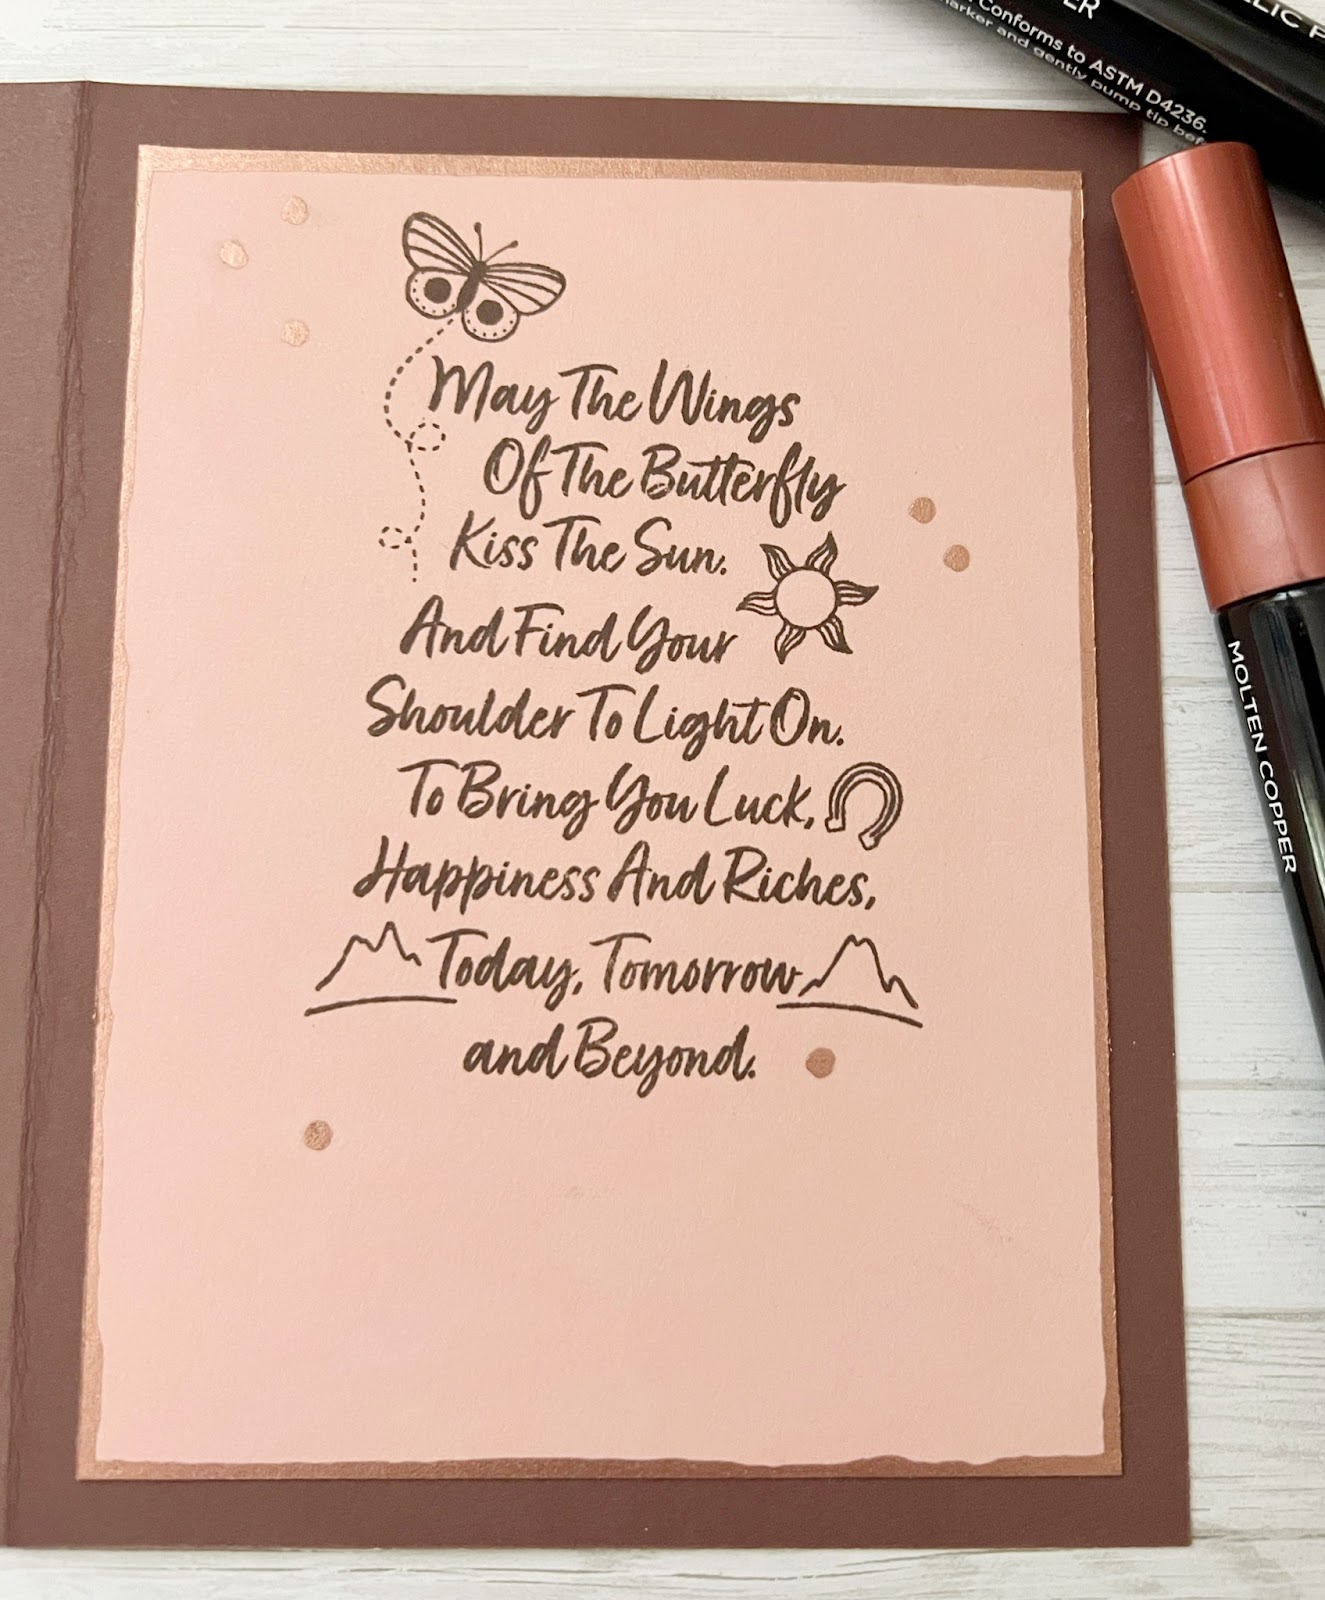 May The Wings
Of The Butterfly
Kiss The Sun.
And Find Your
Shoulder To Light On.
To Bring You Luck,
Happiness And Riches,
Today, Tomorrow
and Beyond.
Conforms to ASTM D4236.
marker and gently pump tip
MOLTEN COPPER